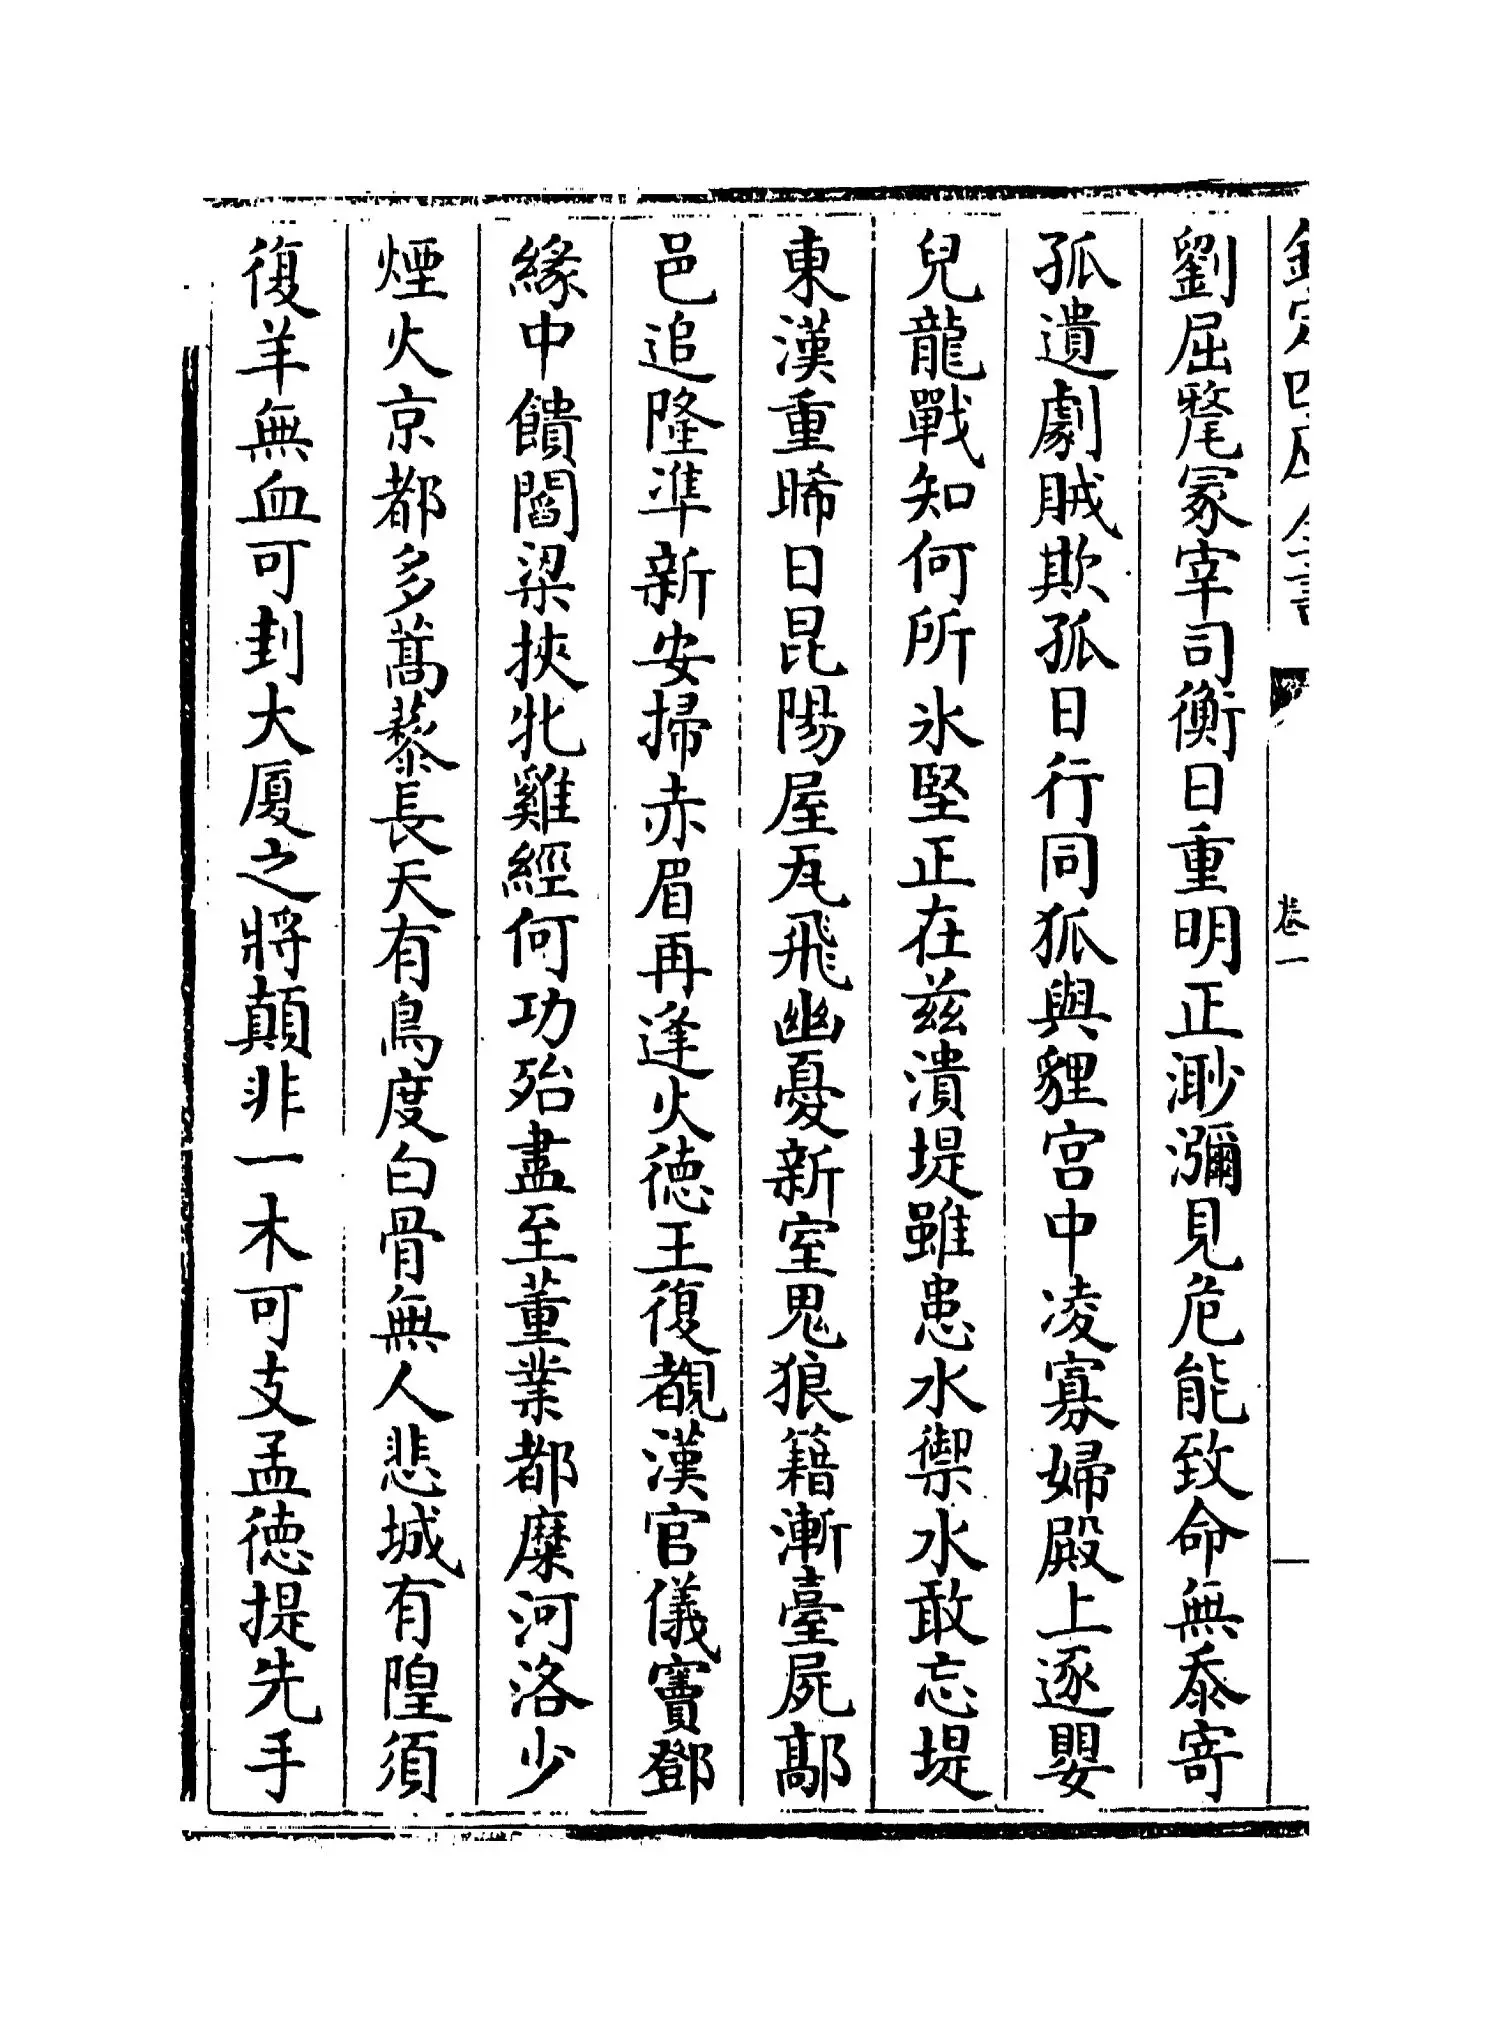 欽定四庫全書
卷一
劉屈氂冢宰司衡日重明正渺瀰見危能致命無忝寄
孤遺劇賊欺孤日行同狐與貍宫中凌寡婦殿上逐嬰
兒龍戰知何所氷堅正在兹潰堤雖患水禦水敢忘堤
東漢重晞日昆陽屋瓦飛幽憂新室鬼狼籍漸臺屍鄗
邑追隆準新安掃赤眉再逢火德王復覩漢官儀竇鄧
緣中饋閻梁挾牝雞經何功殆盡至董業都糜河洛少
煙火京都多蒿藜長天有鳥度白骨無人悲城有隍須
復羊無血可刲大厦之將顛非一木可支孟德提先手